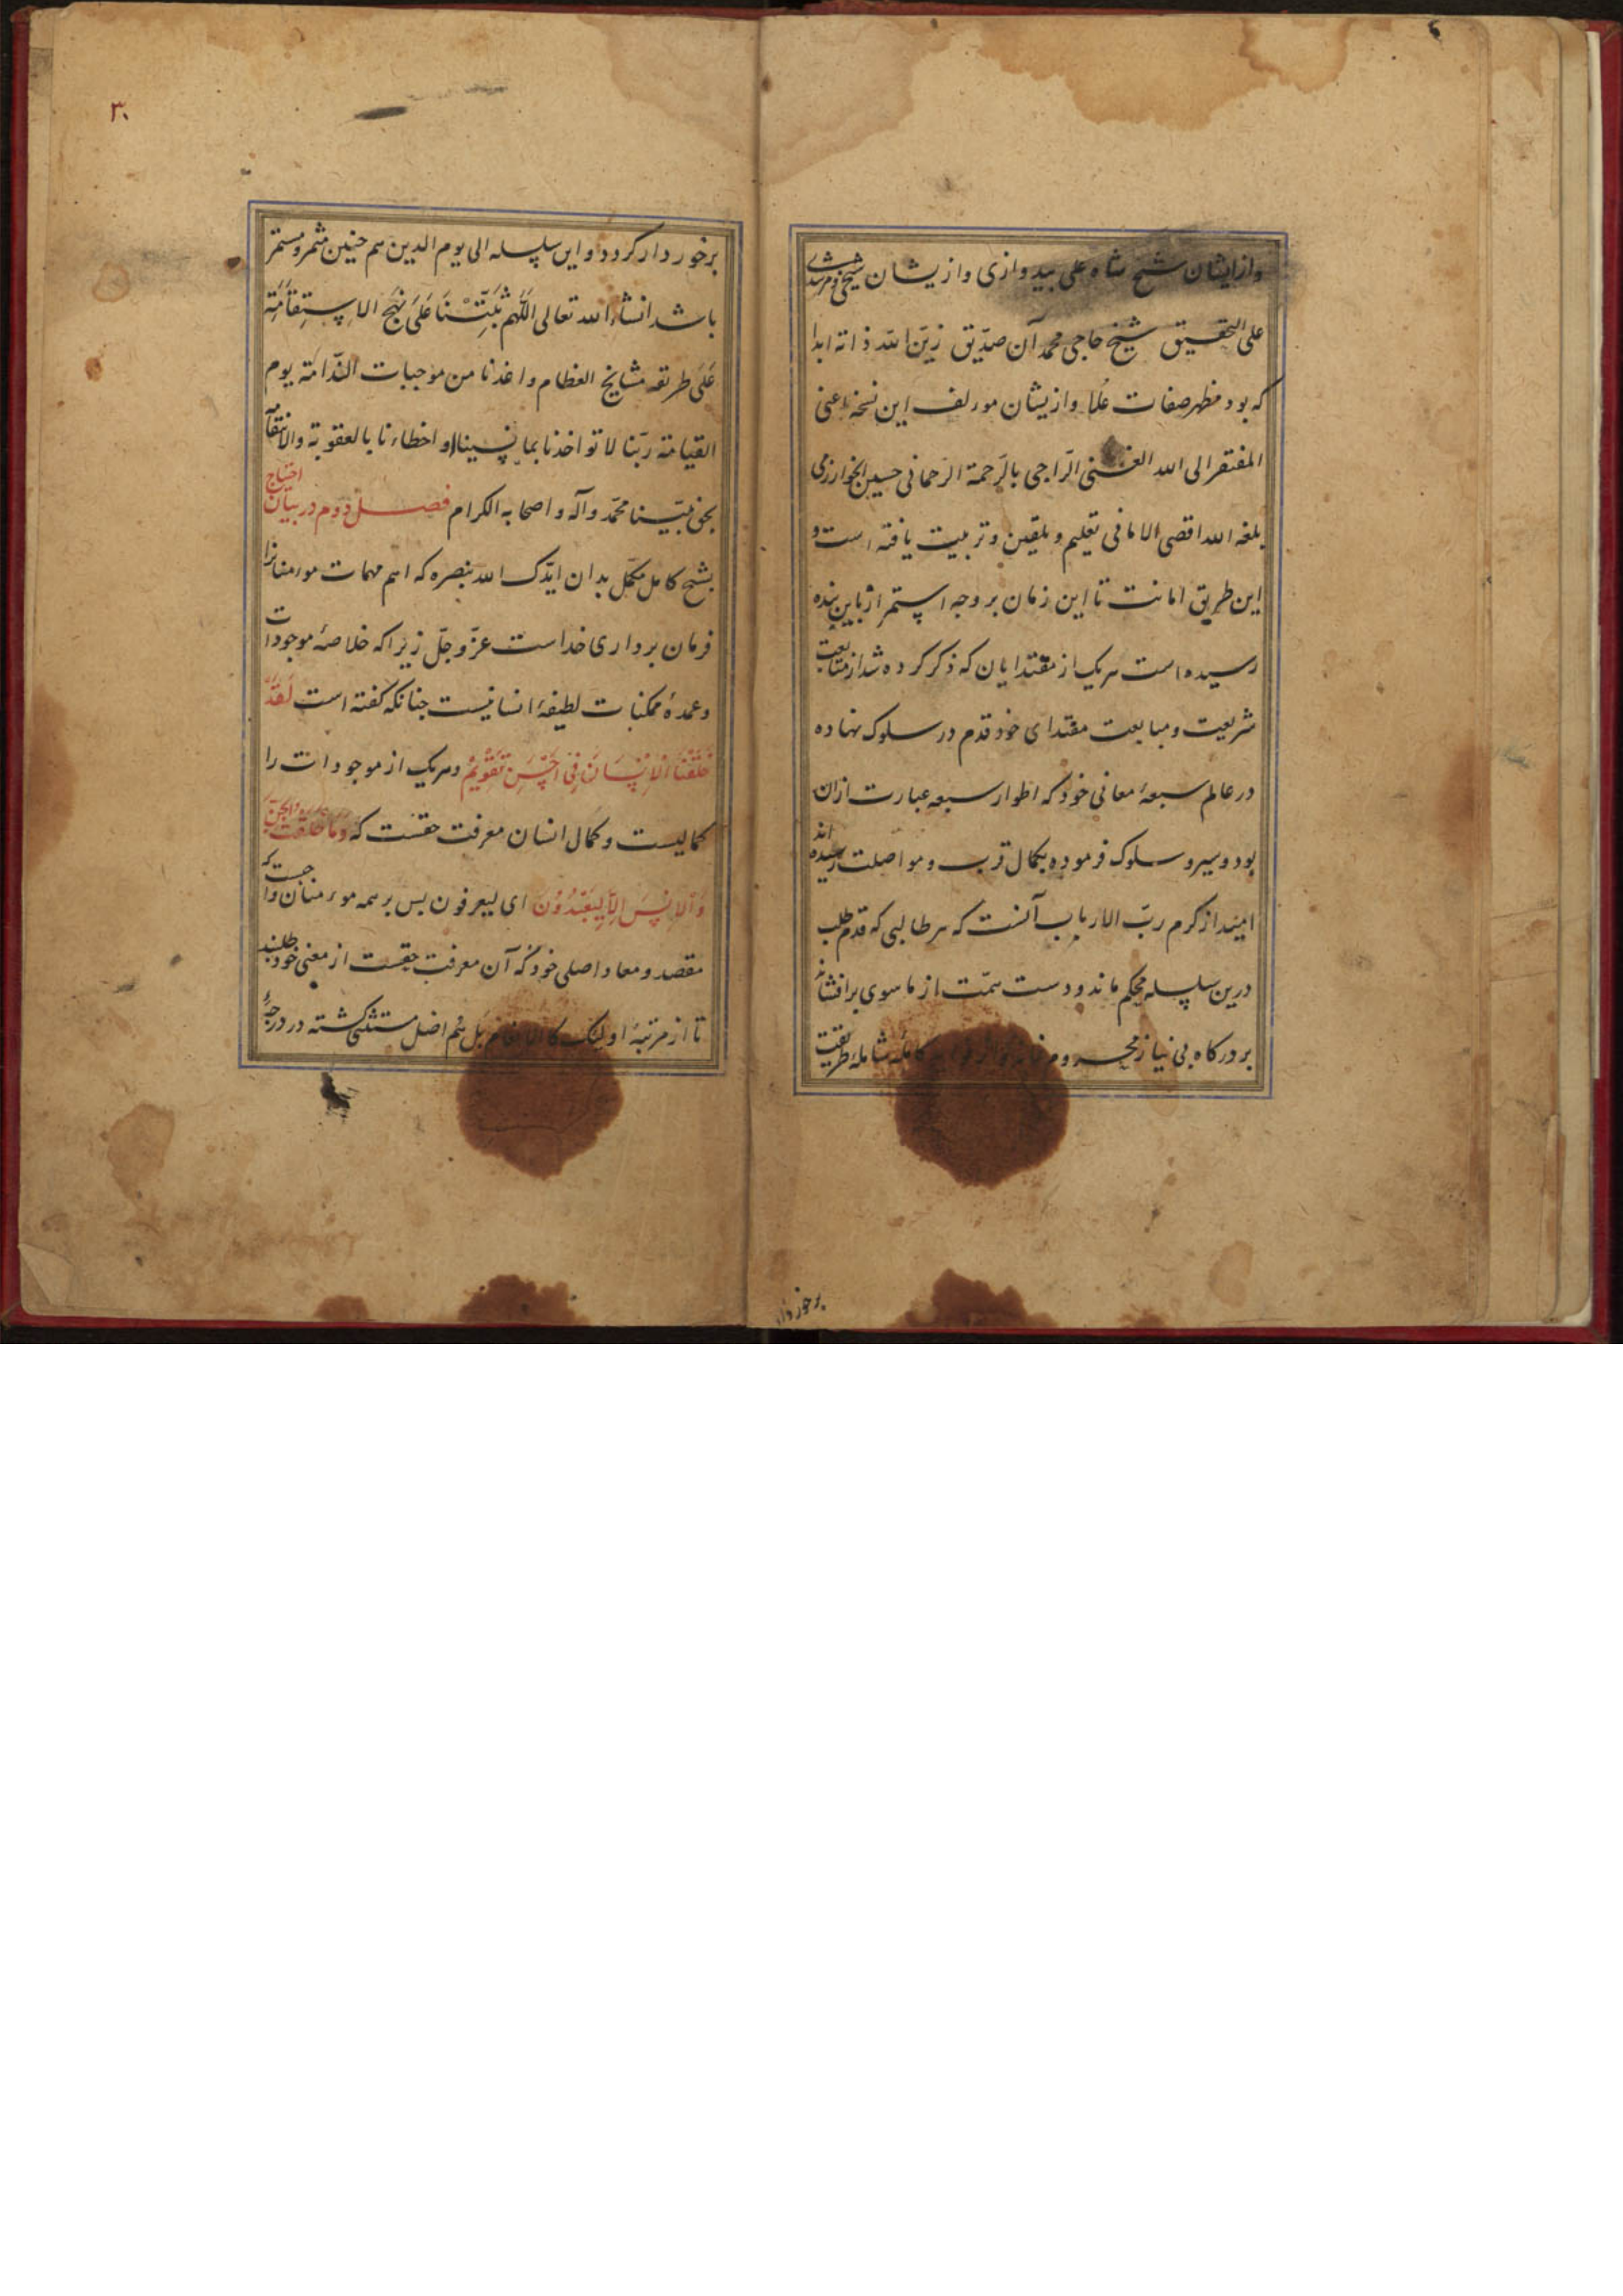 وازایشان شیخ شاه علی بیدوازی وازیشان شیخی ومرشدی
علی التحقیق شیخ حاجی محمد آن صدّیق زیّن الله ذاته ابدا
که بود مظهر صفات عُلا وازیشان مورلف این نسخه اعنی
المفتقر الی الله الغنی الرّاجی بالرّحمة الرّحمانی حسین الخوارزمی
بلغه الله اقصی الامانی تعلیم وتلقین وتربیت یافته است و
این طریق امانت تا این زمان بر وجه استمرار باین بنده
رسیده است هریک از مقتدایان که ذکر کرده شد از متابعت
شریعت ومبایعت مقتدای خود قدم در سلوک نهاده
در عالم سبعهٔ معانی خود که اطوار سبعه عبارت ازان
بود وسیر وسلوک فرموده بکمال قرب ومواصلت رسیده اند
امید از کرم ربّ الارباب آنست که هر طالبی که قدم طلب
درین سلسله محکم ماند ودست همّت از ماسوی برافشاند
بر درکاه بی نیاز محروم نماند کاملهٔ شاملهٔ طریقت
برخوردار
۳۰
برخوردار کردد واین سلسله الی یوم الدین هم جنین مثمر ومستمر
باشد انشاء الله تعالی اَللّهُم ثَبِّتْنَا عَلَی نَهْج الاِستِقَامَةِ
عَلَی طریقه مشایخ العظام واعذنا من موجبات النّدامة یوم
القیامة ربّنا لا تواخذنا بما نسینا او اخطاءنا بالعقوبة والانتقام
بحق نبیّنا محمّد وآله واصحابه الکرام فصل دوم در بیان احتیاج
بشیخ کامل مکمّل بدان ایّدک الله بنصره که اهم مهمات مورمنانرا
فرمان برداری خداست عزّ وجلّ زیرا که خلاصهٔ موجودات
وعمدهٔ ممکنات لطیفهٔ انسانیست جنانکه کفته است لَقَدْ
خَلَقْنَا الْاِنْسَانَ فِی اَحْسَنِ تَقْوِیْمٍ وهریک از موجودات را
کمالیست وکمال انسان معرفت حقست که وَمَا خَلَقْتُ الْجِنَّ
وَالْاِنْسَ اِلَّا لِیَعْبُدُوْنَ ای لیعرفون بس بر همه مورمنان واجبست که
مقصد ومعاد اصلی خود که آن معرفت حقست از معنی خود طلبند
تا از مرتبهٔ اولئک کالانعام بل هُم اضل مستثنی کشته در درجهٔ